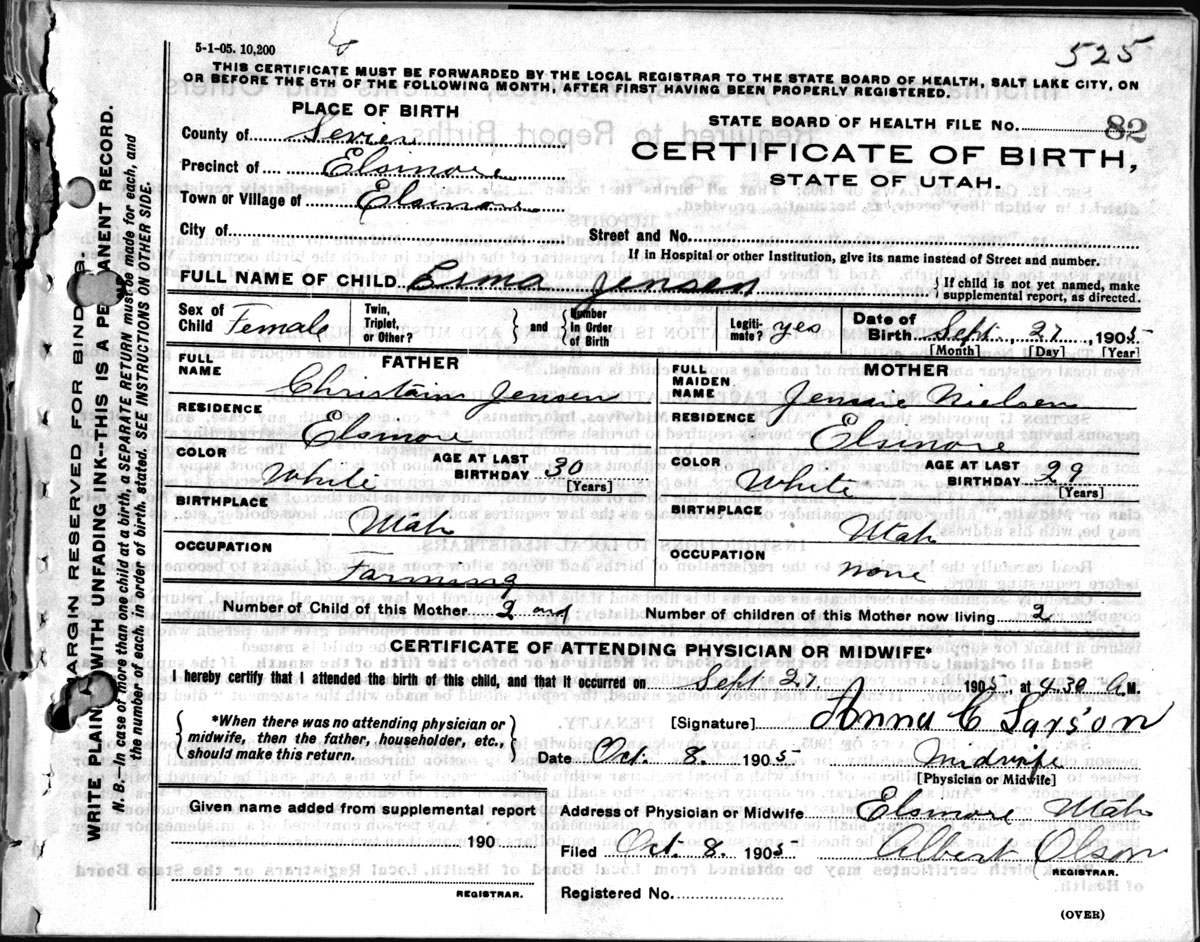 525
5-1-05. 10,200
THIS CERTIFICATE MUST BE FORWARDED BY THE LOCAL REGISTRAR TO THE STATE BOARD OF HEALTH, SALT LAKE CITY, ON
OR BEFORE THE 5TH OF THE FOLLOWING MONTH, AFTER FIRST HAVING BEEN PROPERLY REGISTERED.
PLACE OF BIRTH
STATE BOARD OF HEALTH FILE NO. 82
County of Sevier
CERTIFICATE OF BIRTH,
Precinct of Elsinore
STATE OF UTAH.
Town or Village of Elsinore
City of Street and No.
If in Hospital or other Institution, give its name instead of Street and number.
FULL NAME OF CHILD Erma Jensen } If child is not yet named, make
supplemental report, as directed.
Sex of Child Female Twin, Triplet, or Other? } and { Number In Order of Birth Legiti- mate? yes Date of Birth Sept. 27, 1905
[Month] [Day] [Year]
FATHER
FULL NAME Christain Jensen
RESIDENCE Elsinore
COLOR White AGE AT LAST BIRTHDAY 30 [Years]
BIRTHPLACE Utah
OCCUPATION Farming
MOTHER
FULL MAIDEN NAME Jennie Nielsen
RESIDENCE Elsinore
COLOR White AGE AT LAST BIRTHDAY 29 [Years]
BIRTHPLACE Utah
OCCUPATION none
Number of Child of this Mother 2 nd Number of children of this Mother now living 2
CERTIFICATE OF ATTENDING PHYSICIAN OR MIDWIFE*
I hereby certify that I attended the birth of this child, and that it occurred on Sept 27 1905, at 4.30 A.M.
{ *When there was no attending physician or
midwife, then the father, householder, etc.,
should make this return. }
[Signature] Anna C Larson
Date Oct. 8. 1905 Midwife
[Physician or Midwife]
Given name added from supplemental report
190
REGISTRAR.
Address of Physician or Midwife Elsinore Utah
Filed Oct. 8. 1905 Albert Olson
REGISTRAR.
Registered No.
(OVER)
MARGIN RESERVED FOR BINDING.
WRITE PLAINLY WITH UNFADING INK--THIS IS A PERMANENT RECORD.
N. B.--In case of more than one child at a birth, a SEPARATE RETURN must be made for each, and
the number of each, in order of birth, stated. SEE INSTRUCTIONS ON OTHER SIDE.